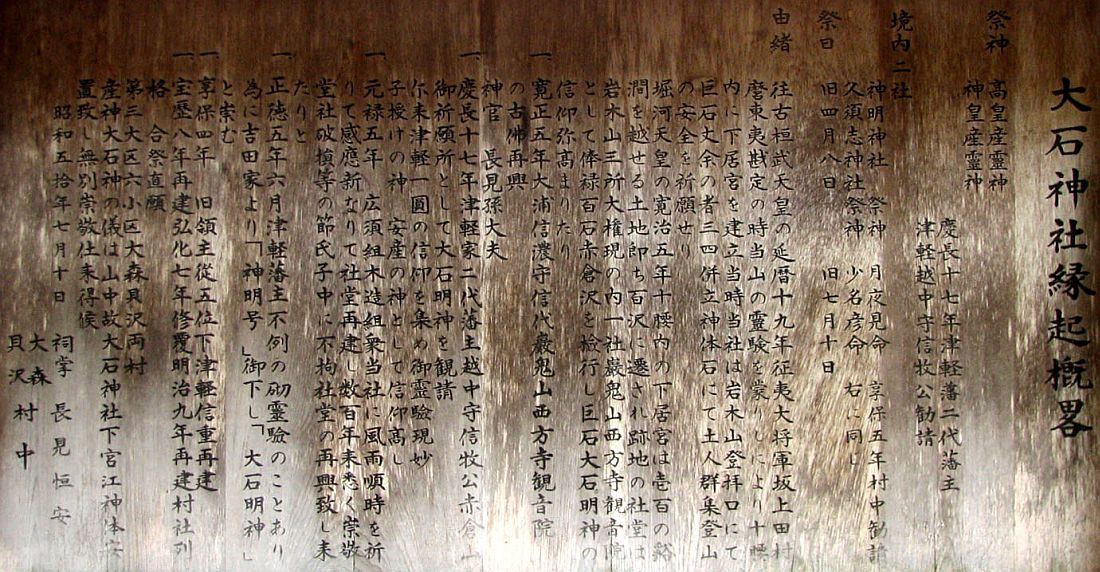 大石神社縁起概畧
祭神　高皇産靈神
神皇産靈神
慶長十七年津軽藩二代藩主
津軽越中守信牧公勧請
境内二社
神明神社　祭神　月夜見命　享保五年村中勧請
久須志神社祭神　少名彦命　右に同じ
祭日　旧四月八日　旧七月十日
由緒　往古桓武天皇の延暦十九年征夷大将軍坂上田村
麿東夷戡定の時当山の靈験を蒙りしにより十腰
内に下居宮を建立当時当社は岩木山登拝口にて
巨石丈余の者三四併立神体石にて土人群集登山
の安全を祈願せり
堀河天皇の寛治五年十腰内の下居宮は壱百の谿
澗を越せる土地即ち百沢に遷され跡地の社堂は
岩木山三所大権現の内一社巌鬼山西方寺観音院
として俸禄百石赤倉沢を検行し巨石大石明神の
信仰弥髙まりたり
一、寛正五年大浦信濃守信代巌鬼山西方寺観音院
の古佛再興
神官　長見孫大夫
一、慶長十七年津軽家二代藩主越中守信牧公赤倉山
御祈願所として大石明神を観請
尓来津軽一圓の信仰を集め御靈驗現妙
子授けの神　安産の神として信仰髙し
一、元禄五年　広須組木造組衆当社に風雨順時を祈
りて感應新なりて社堂再建し数百年来悉く崇敬
堂社破損等の節氏子中に不拘社堂の再興致し来
たりと
一、正徳五年六月津軽藩主不例の砌靈驗のことあり
為に吉田家より「神明号」御下し「大石明神」
と崇む
一、享保四年　旧領主従五位下津軽信重再建
一、宝歴八年再建弘化七年修覆明治九年再建村社列
格　合祭直願
第三大区六小区大森貝沢両村
産神大石神の儀は山中故大石神社下宮江神体安
置致し無別崇敬仕来得候
昭和五拾年七月十日
祠掌　長見恒安
大森
貝沢　村中